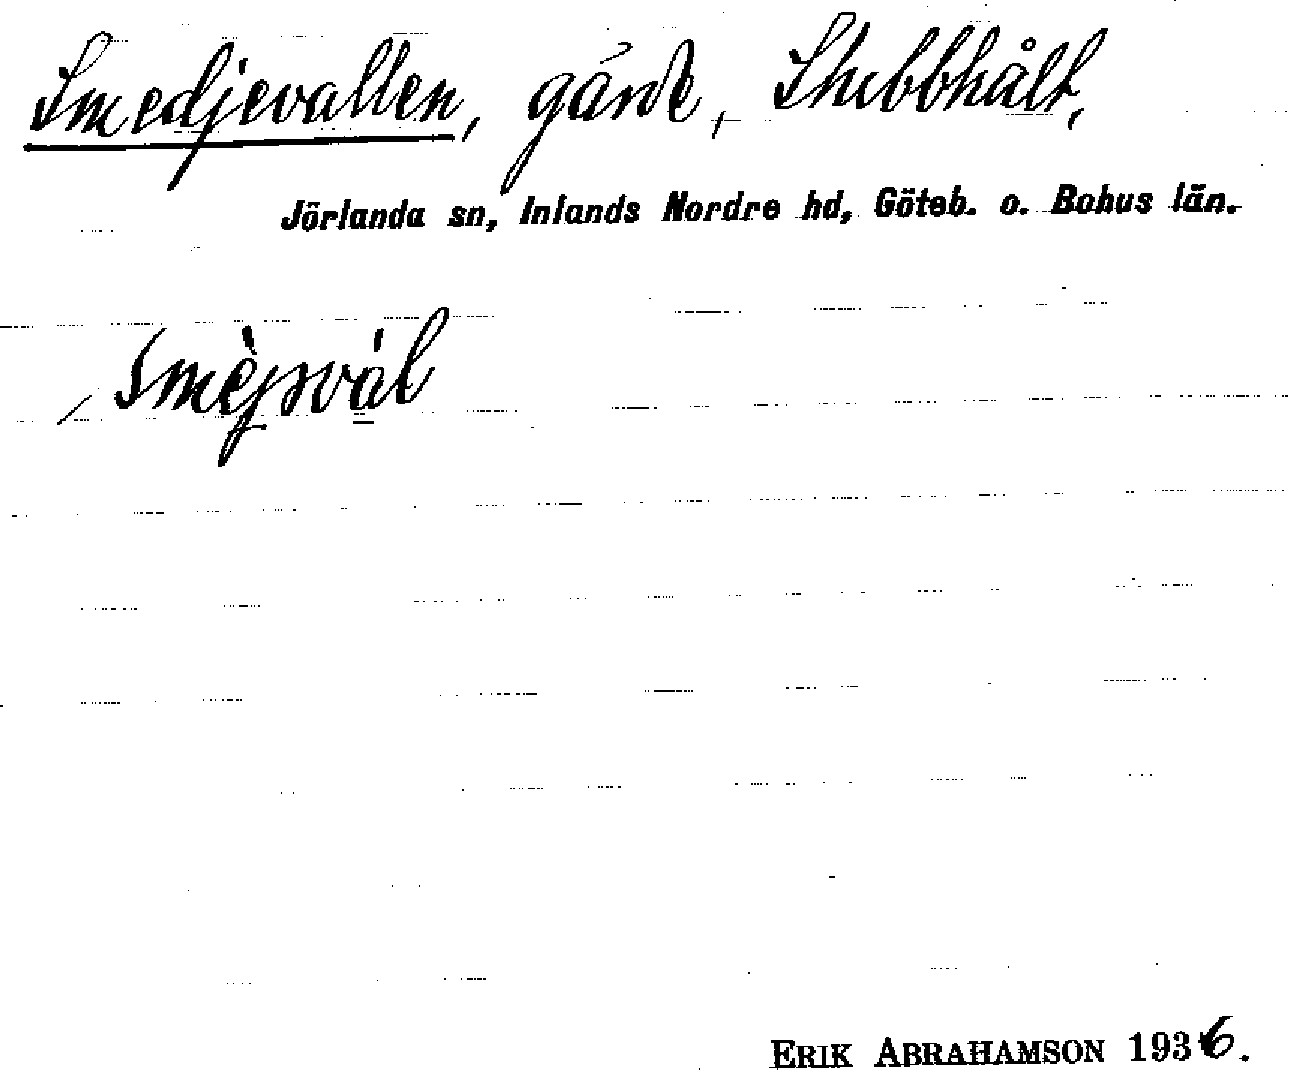 Smedjevallen, gärde, Stubbhålt,
Jörlanda sn, Inlands Nordre hd, Göteb. o. Bohus län.
ERIK ABRAHAMSON 1936.